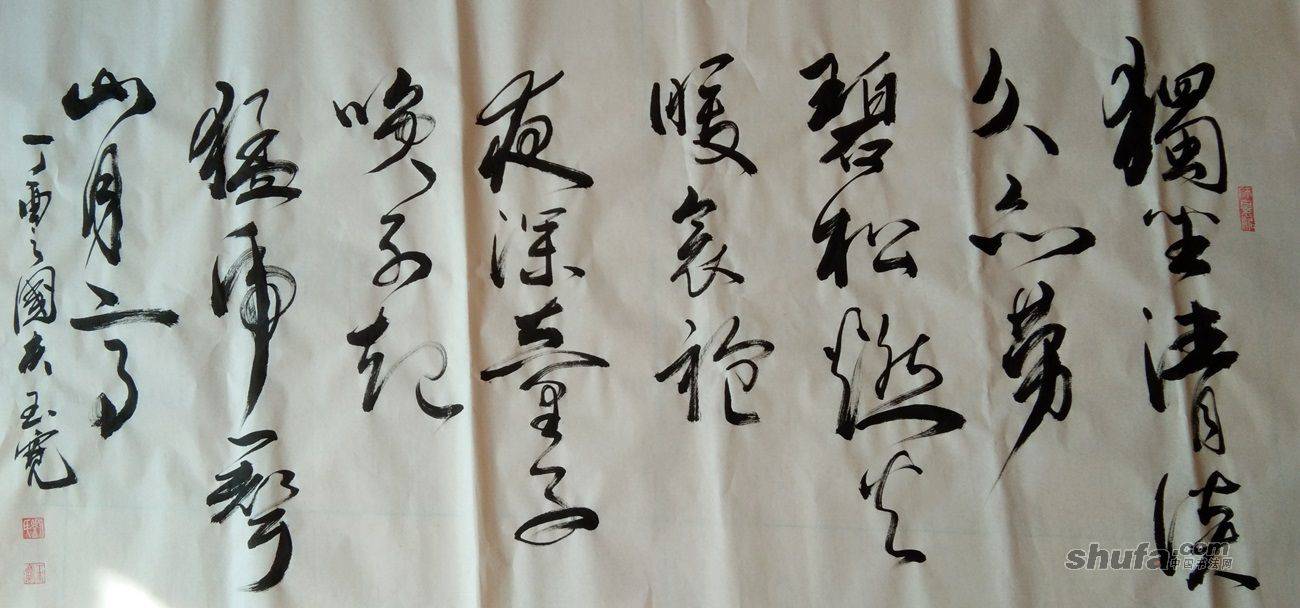 獨坐清談
久亦勞
碧松燃火
暖衾袍
夜深童子
喚不起
猛虎一聲
山月高
丁酉之國慶玉寬
shufa.com
中国书法网